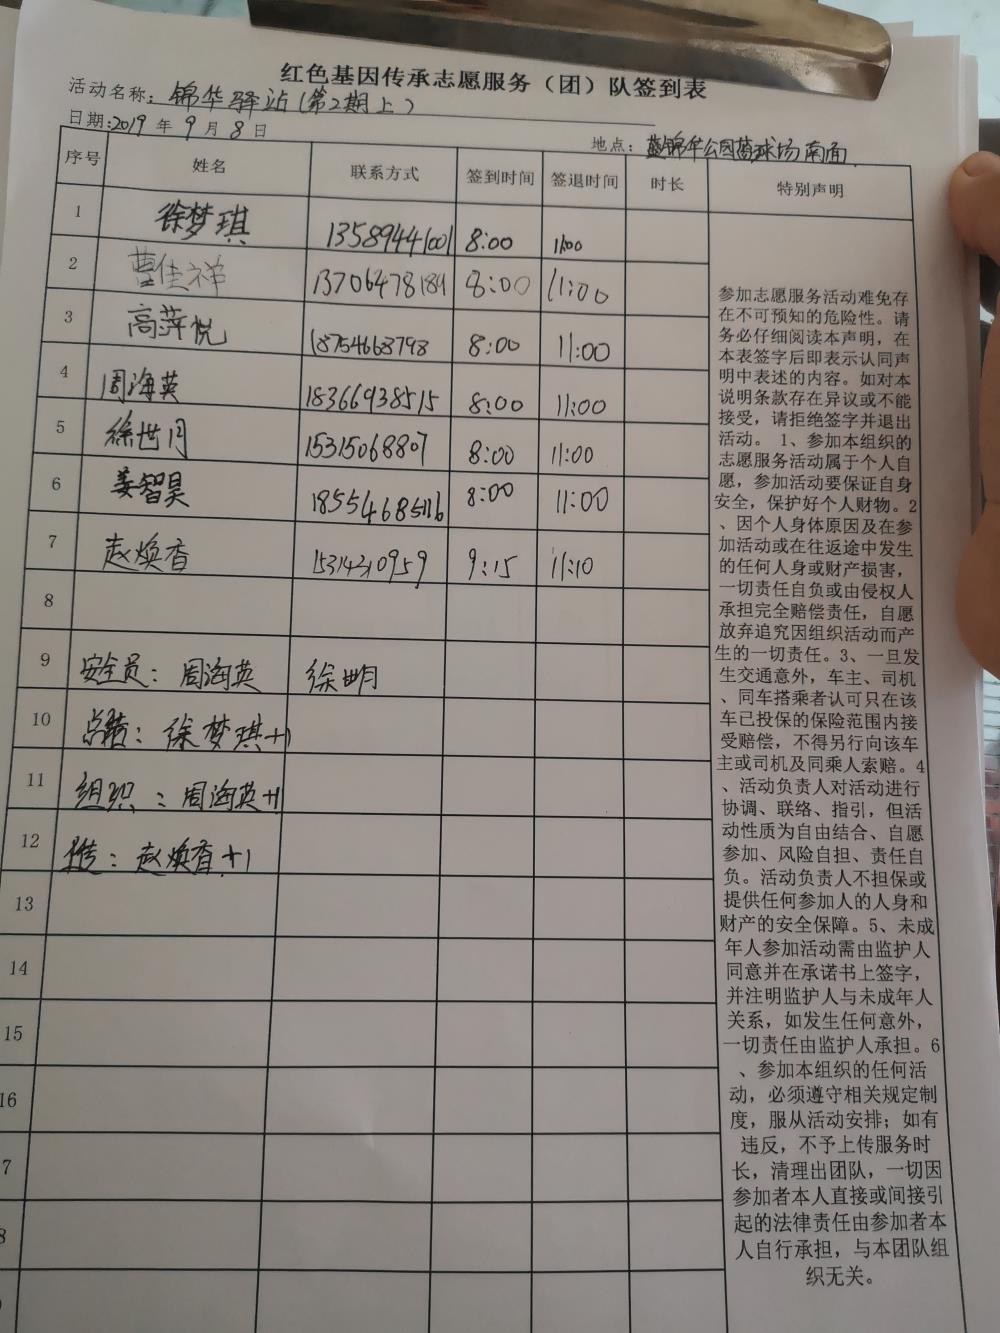 红色基因传承志愿服务（团）队签到表
活动名称：锦华驿站（第2期上）
日期：2019年9月8日
地点：锦华公园篮球场南面
序号 姓名 联系方式 签到时间 签退时间 时长 特别声明
1 徐梦琪 13589441001 8:00 11:00
2 曹佳祥 13706478189 8:00 11:00
3 高萍悦 18754668798 8:00 11:00
4 周海英 18366938515 8:00 11:00
5 徐世月 15315068807 8:00 11:00
6 姜智昊 18554685116 8:00 11:00
7 赵焕香 15314310959 9:15 11:10
8
9 安全员：周海英 徐世明
10 总结：徐梦琪+1
11 组织：周海英+1
12 赵焕香+1
13
14
15
16
7
8
参加志愿服务活动难免存
在不可预知的危险性。请
务必仔细阅读本声明，在
本表签字后即表示认同声
明中表述的内容。如对本
说明条款存在异议或不能
接受，请拒绝签字并退出
活动。 1、参加本组织的
志愿服务活动属于个人自
愿，参加活动要保证自身
安全，保护好个人财物。2
、因个人身体原因及在参
加活动或在往返途中发生
的任何人身或财产损害，
一切责任自负或由侵权人
承担完全赔偿责任，自愿
放弃追究因组织活动而产
生的一切责任。3、一旦发
生交通意外，车主、司机
、同车搭乘者认可只在该
车已投保的保险范围内接
受赔偿，不得另行向该车
主或司机及同乘人索赔。4
、活动负责人对活动进行
协调、联络、指引，但活
动性质为自由结合、自愿
参加、风险自担、责任自
负。活动负责人不担保或
提供任何参加人的人身和
财产的安全保障。5、未成
年人参加活动需由监护人
同意并在承诺书上签字，
并注明监护人与未成年人
关系，如发生任何意外，
一切责任由监护人承担。6
、参加本组织的任何活
动，必须遵守相关规定制
度，服从活动安排；如有
违反，不予上传服务时
长，清理出团队，一切因
参加者本人直接或间接引
起的法律责任由参加者本
人自行承担，与本团队组
织无关。